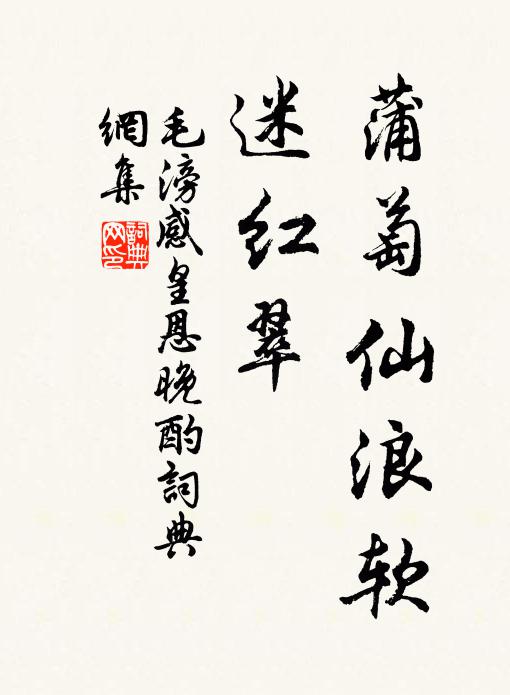 蒲萄仙浪软
迷红翠
毛滂感皇恩晚酌詞典
網集
詞典
网印